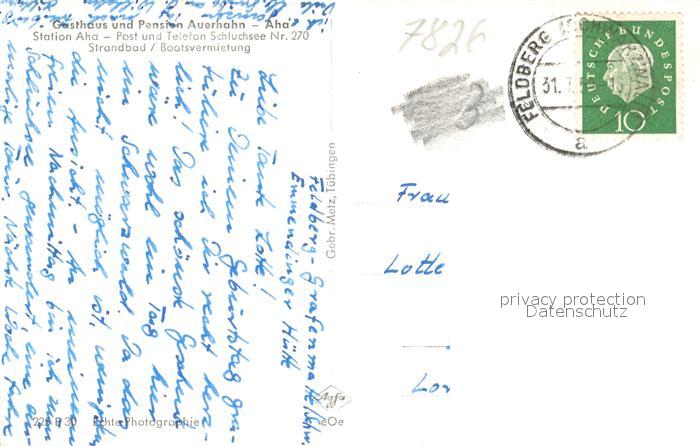 Gasthaus und Pension Auerhahn – Aha
Station Aha – Post und Telefon Schluchsee Nr. 270
Strandbad / Bootsvermietung
Feldberg - Grafenmatt
Emmendinger Hütte
Liebe Tante Lotte!
Zu Deinem Geburtstag gra-
tuliere ich Dir recht herz-
lich! Das schönste Geschenk
wäre wohl ein Tag hier
im Schwarzwald. Da das
nicht möglich ist, wenigstens
die Aussicht. - An meinem
freien Nachmittag bin ich zum
Schluchsee gewandert, eine
Tour. Nächste Woche
Gebr. Metz, Tübingen
Agfa
Echte Photographie
7826
3
FELDBERG (SCHWARZWALD)
31.7.
a
DEUTSCHE BUNDESPOST
10
Frau
Lotte
Lor
privacy protection
Datenschutz